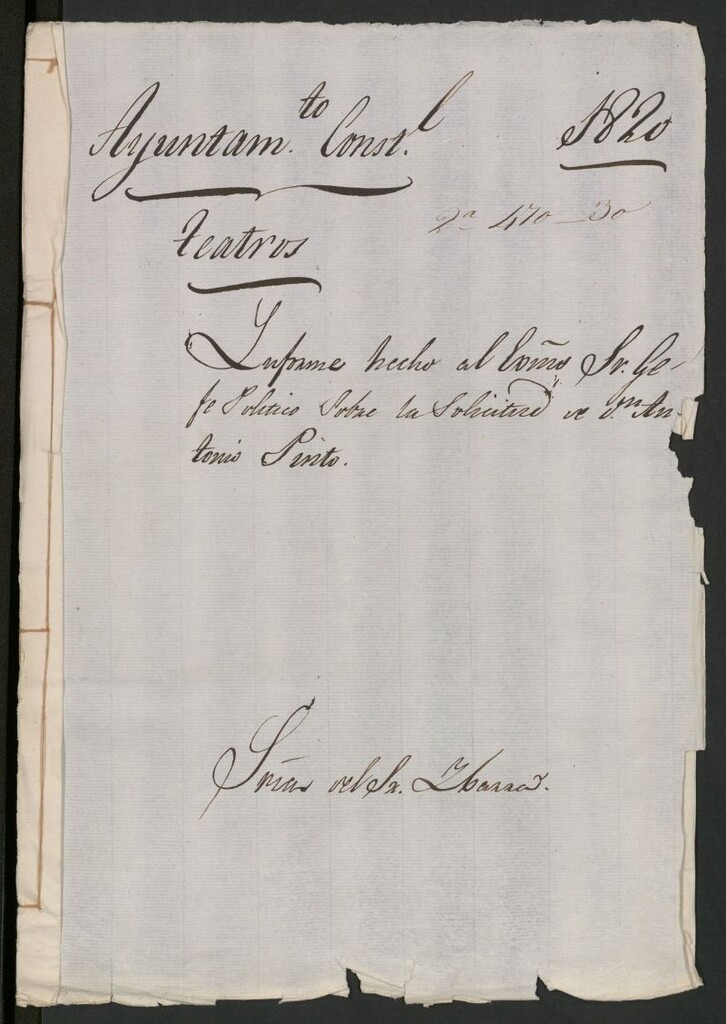 Ayuntam.to Const.l 1820
2a 470-30
Teatros
Ynforme hecho al Exmo Sr. Ge-
fe Politico Sobre la Solicitud de Dn An-
tonio Pinto.
Sria del Sr. Ybarra.